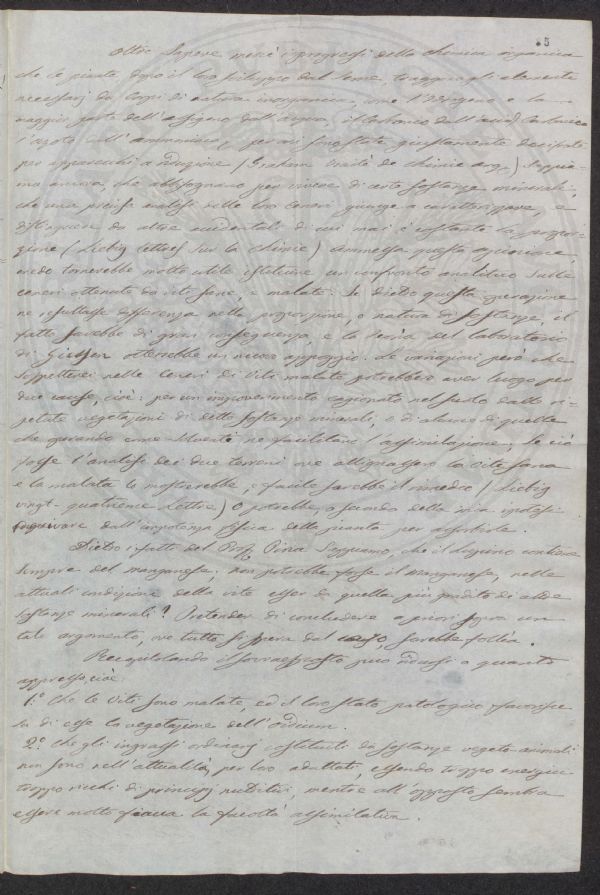 5
Oltre sapere mercè i progressi della chimica organica
che le piante, dopo il loro sviluppo dal seme, traggono gli elementi
necessarj da corpi di natura inorganica, come l'Idrogeno e la
maggior parte dell'ossigeno dall'acqua, il carbonio dall'acido Carbonico
l'azoto dall'ammoniaca,
per apparecchi a riduzione (Graham Traité de chimie org.) Sappia-
mo ancora, che abbisognano per vivere di certe sostanze minerali,
che una precisa analisi delle loro ceneri giunge a caratterizzare, e
distinguere da altre accidentali di cui mai è costante la propor-
zione (Liebig lettres sur la chimie) Ammessa questa
credo tornerebbe molto utile istituire un confronto analitico sulle
ceneri ottenute da viti sane, e malate. Se dietro questa operazione
ne resultasse differenza nella proporzione, o natura di sostanze, il
fatto sarebbe di gran conseguenza, e la teoria del laboratorio
di Giessen otterrebbe un nuovo appoggio. Le variazioni però che
sospetterei nelle ceneri di viti malate potrebbero aver luogo per
due cause, cioè: per un impoverimento cagionato nel suolo dalle ri-
petute vegetazioni di dette sostanze minerali, o di alcune di quelle
che operando come solventi ne facilitano l'assimilazione; se ciò
fosse l'analisi dei due terreni ove allignassero la vite sana
e la malata lo mostrerebbe, e facile sarebbe il rimedio (Liebig
vingt-quatrième lettre) O potrebbe, secondo della mia ipotesi
derivare dall'impotenza fisica della pianta per assorbirle.
Dietro i fatti del Prof. Piria sappiamo, che il lupino contiene
sempre del manganese; non potrebbe forse il manganese, nelle
attuali condizioni della vite esser da quella più gradito di altre
sostanze minerali? Pretender di concludere a priori sopra un
tale argomento, ove tutto si spera dal caso, sarebbe follia.
Recapitolando il sopraesposto può ridursi a quanto
appresso, cioè:
1.º Che le viti sono malate, ed il loro stato patologico favorisce
su di esse la vegetazione dell'Oidium.
2.º Che gli ingrassi ordinarj costituiti da sostanze vegeto-animali
non sono nell'attualità, per loro adattati, essendo troppo energici
troppo ricchi di principj nutritivi, mentre all'opposto sembra
essere molto fiacca la facoltà assimilatrice.